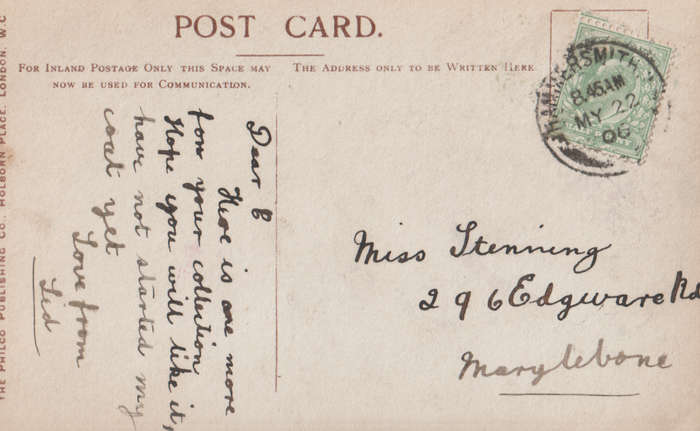 POST CARD.
FOR INLAND POSTAGE ONLY THIS SPACE MAY
NOW BE USED FOR COMMUNICATION.
THE ADDRESS ONLY TO BE WRITTEN HERE
THE PHILCO PUBLISHING CO., HOLBORN PLACE, LONDON, W.C
HAMMERSMITH
8.45AM
MY 22
06
Dear E
Here is one more
for your collection
Hope you will like it,
have not started my
coat yet
Love from
Sid
Miss Stenning
296 Edgware Rd
Marylebone